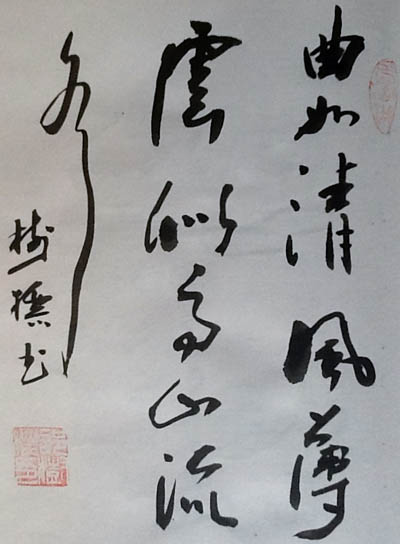 曲如清風薄
雲似高山流
水
樹標书